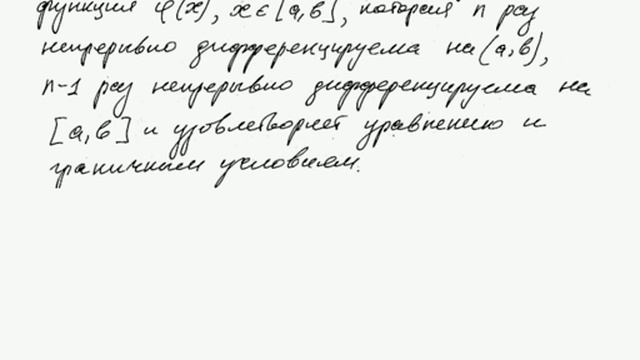 функция φ(x), x ∈ [a, b], которая n раз
непрерывно дифференцируема на (a, b),
n-1 раз непрерывно дифференцируема на
[a, b] и удовлетворяет уравнению и
граничным условиям.